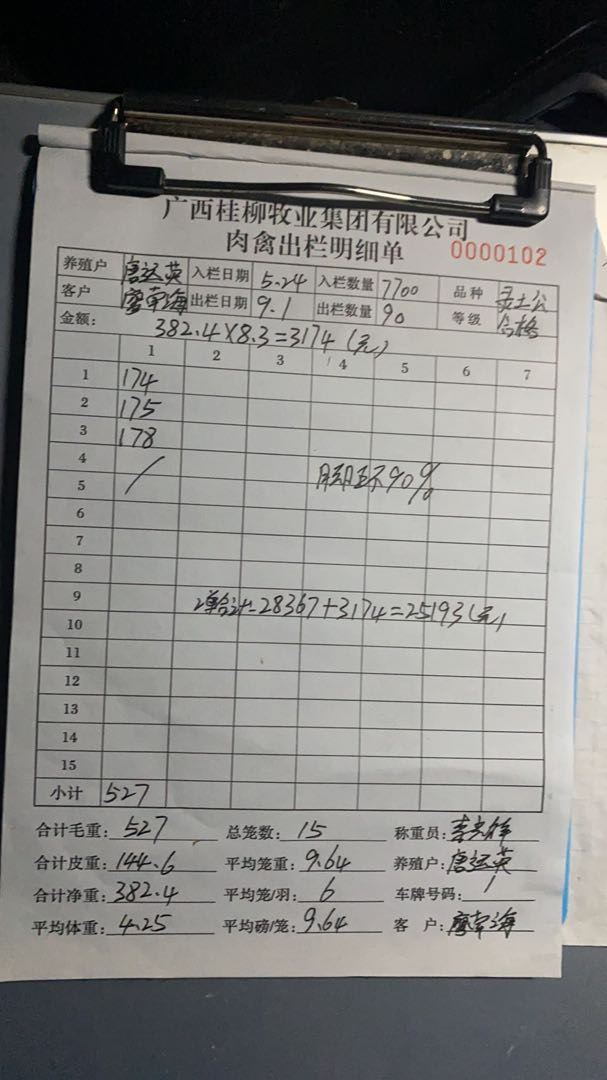 广西桂柳牧业集团有限公司
肉禽出栏明细单 0000102
养殖户 唐运英 入栏日期 5.24 入栏数量 7700 品种 灵土公
客户 廖常海 出栏日期 9.1 出栏数量 90 等级 合格
金额: 382.4×8.3=3174(元)
1 2 3 4 5 6 7
1 174
2 175
3 178
4
5 脚环90%
6
7
8
9 2单合计=28367+3174=25193(元)
10
11
12
13
14
15
小计 527
合计毛重: 527 总笼数: 15 称重员:
合计皮重: 144.6 平均笼重: 9.64 养殖户: 唐运英
合计净重: 382.4 平均笼/羽: 6 车牌号码: /
平均体重: 4.25 平均磅/笼: 9.64 客 户: 廖常海